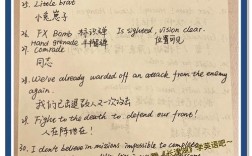 25. Little brat
小兔崽子
26. FX Bomb 标识弹 Is sighted, vision clear.
Hand Grenade 手榴弹 位置可见
27. Comrade
同志
28. We've already warded off an attack from the enemy
again.
我们已击退敌人又一次的攻击
29. Fight to the death to defend our front!
人在阵地在!
30. I don't believe in missions impossible to complete
英语吧~